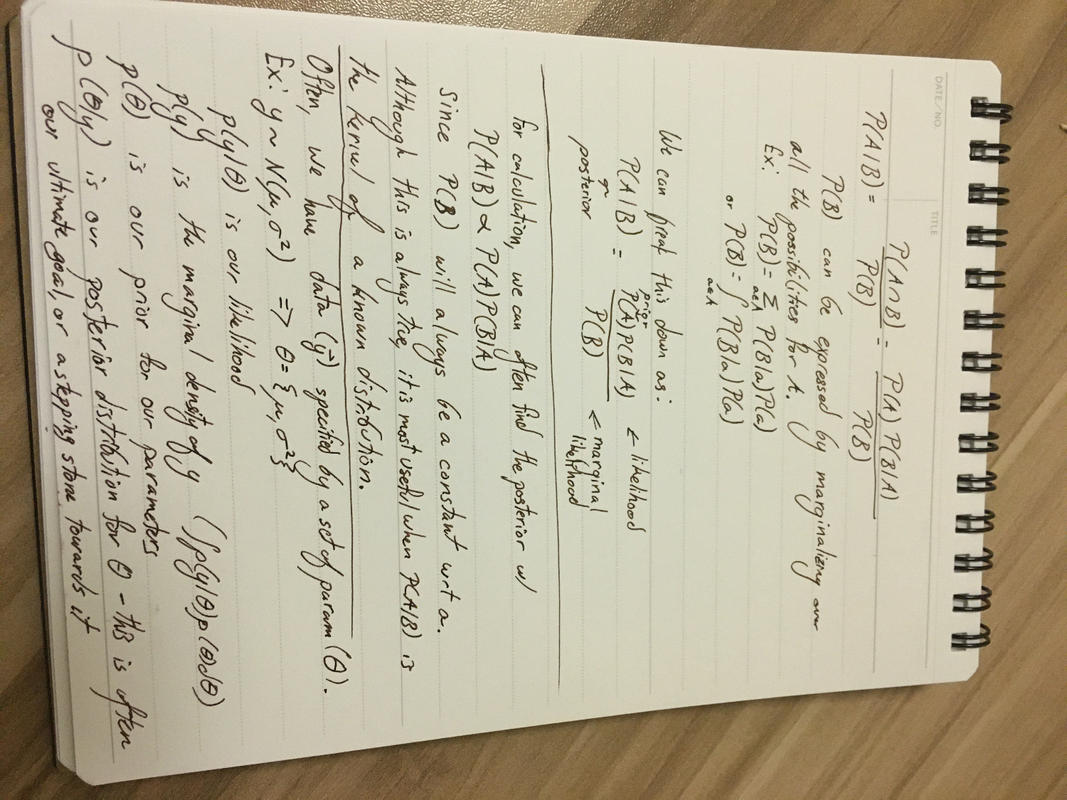 DATE/NO.
TITLE
P(A|B) = P(A∩B) / P(B) = P(A) P(B|A) / P(B)
P(B) can be expressed by marginalizing over
all the possibilities for A.
Ex: P(B) = Σ a∈A P(B|a)P(a)
or P(B) = ∫ a∈A P(B|a)P(a)
We can treat this down as:
prior
P(A|B) = P(A)P(B|A) / P(B) ← likelihood
posterior ← marginal
likelihood
for calculation, we can often find the posterior w/
P(A|B) ∝ P(A)P(B|A)
Since P(B) will always be a constant wrt a.
Although this is always true, it is most useful when P(A|B) is
the kernel of a known distribution.
Often, we have data (y) specified by a set of param (θ).
Ex: y ~ N(μ, σ²) => θ = {μ, σ²}
p(y|θ) is our likelihood
p(y) is the marginal density of y (∫p(y|θ)p(θ)dθ)
p(θ) is our prior for our parameters
p(θ|y) is our posterior distribution for θ - this is often
our ultimate goal, or a stepping stone towards it